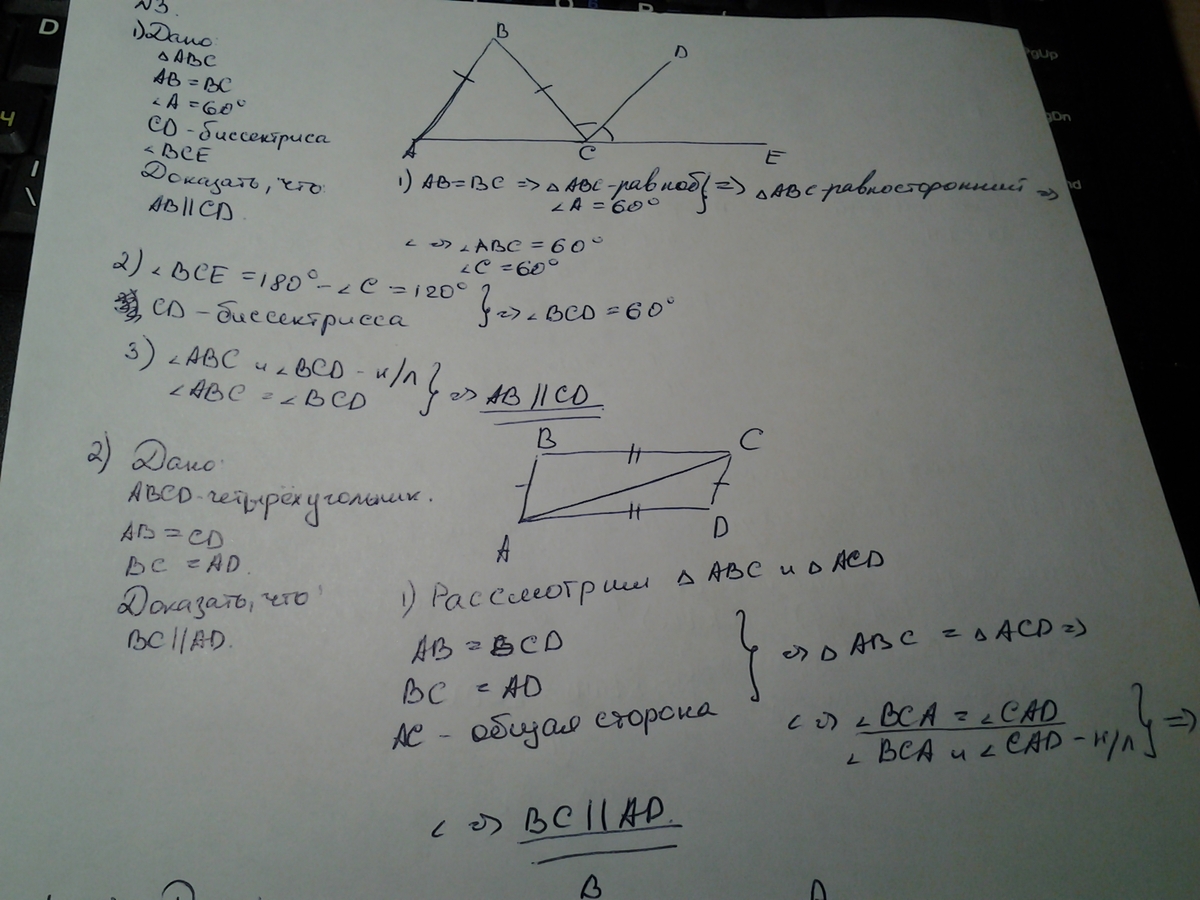 N3.
1) Дано:
△ABC
AB = BC
∠A = 60°
CD - биссектриса
∠BCE
Доказать, что:
AB || CD.
B
D
A
C
E
1) AB = BC => △ABC - равноб } => △ABC - равносторонний =>
∠A = 60°
< => ∠ABC = 60°
∠C = 60°
2) ∠BCE = 180° - ∠C = 120° } => ∠BCD = 60°
CD - биссектрисса
3) ∠ABC и ∠BCD - н/л } => AB || CD
∠ABC = ∠BCD
2) Дано:
ABCD - четырёхугольник.
AB = CD
BC = AD.
Доказать, что:
BC || AD.
B
C
A
D
1) Рассмотрим △ABC и △ACD
AB = CD
BC = AD
AC - общая сторона
} => △ABC = △ACD =>
< => ∠BCA = ∠CAD
∠BCA и ∠CAD - н/л } =>
< => BC || AD.
B
D
PgUp